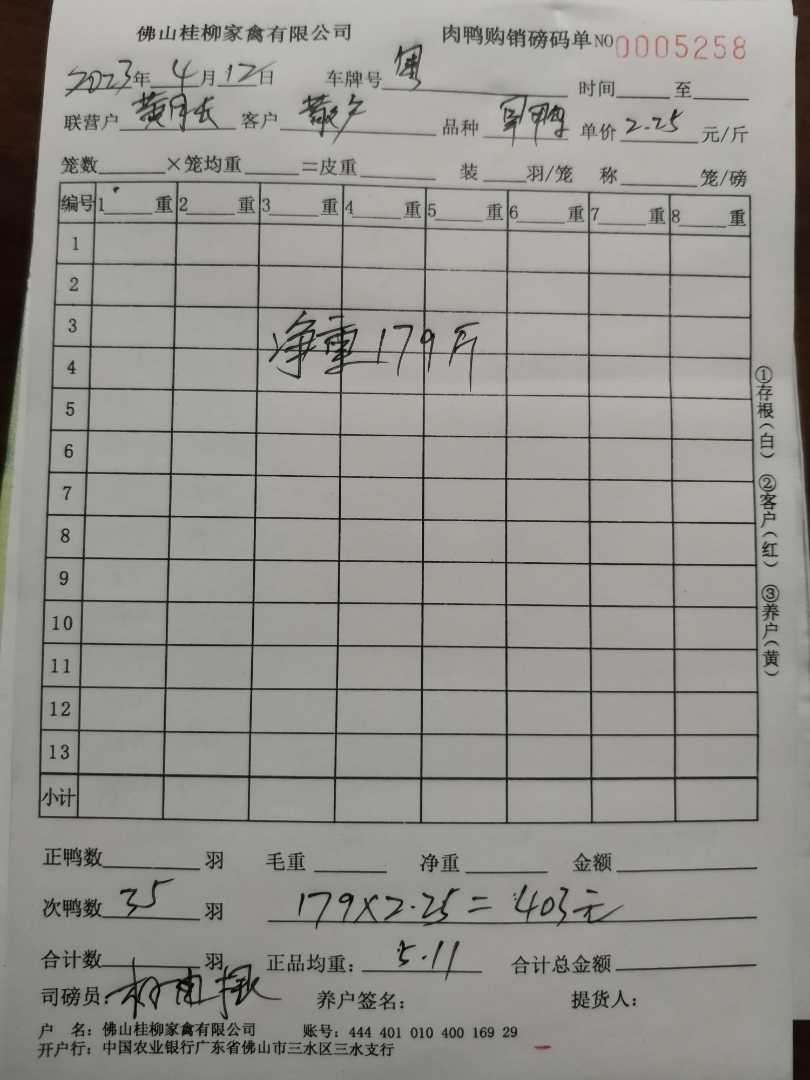 佛山桂柳家禽有限公司 肉鸭购销磅码单 NO 0005258
2023年 4月 12日 车牌号 时间 至
联营户 客户 散户 品种 单价 2.25 元/斤
笼数 ×笼均重 =皮重 装 羽/笼 称 笼/磅
编号 1 重 2 重 3 重 4 重 5 重 6 重 7 重 8 重
1
2
3
净重179斤
4
5
6
7
8
9
10
11
12
13
小计
①存根(白) ②客户(红) ③养户(黄)
正鸭数 羽 毛重 净重 金额
次鸭数 35 羽 179×2.25=403元
合计数 羽 正品均重: 5.11 合计总金额
司磅员: 养户签名: 提货人:
户 名: 佛山桂柳家禽有限公司 账号: 444 401 010 400 169 29
开户行: 中国农业银行广东省佛山市三水区三水支行